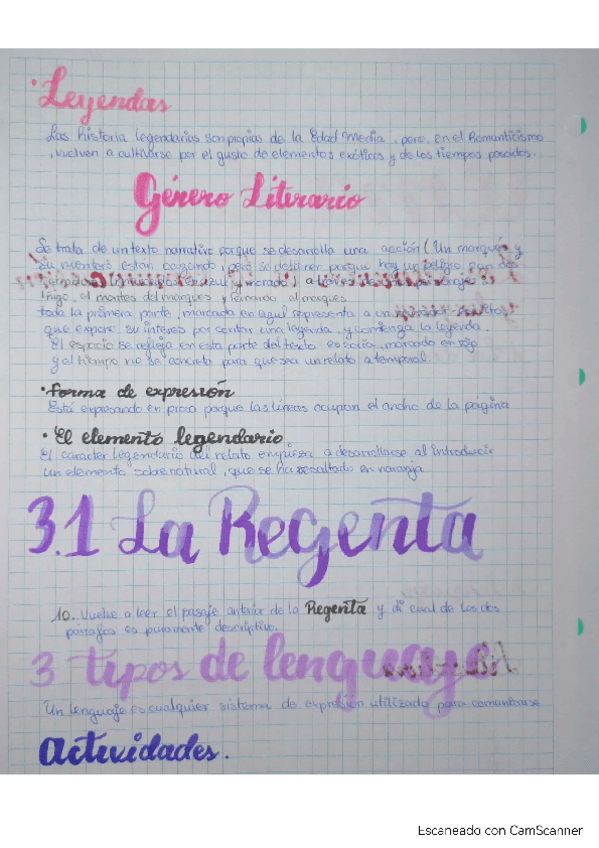 · Leyendas
Las historia legendarias son propias de la Edad Media, pero, en el Romanticismo
, vuelven a cultivarse por el gusto de elementos exóticos y de los tiempos pasados.
Género Literario
Se trata de un texto narrativo porque se desarrolla una acción (Un marqués y
su montero están cazando, pero se detienen porque hay un peligro
a través de los personajes
Iñigo, el montes del marques y Fernando el marques
toda la primera parte, marcada en azul representa a un narrador
que expone su interes por contar una leyenda, y comienza la leyenda.
El espacio se refleja en esta parte del texto es Soria, marcado en rojo
y el tiempo no se concreta para que sea un relato atemporal.
· forma de expresión
Está expresando en prosa porque las líneas ocupan el ancho de la página
· El elemento legendario
El carácter legendario del relato empieza a desarrollarse al introducir
un elemento sobrenatural, que se ha resaltado en naranja
3.1 La Regenta
10. Vuelve a leer el pasaje anterior de la Regenta y di cual de los dos
parrafos es puramante descriptivo.
3 tipos de lenguaje
Un lenguaje es cualquier sistema de expresión utilizado para comunicarse
Actividades.
Escaneado con CamScanner